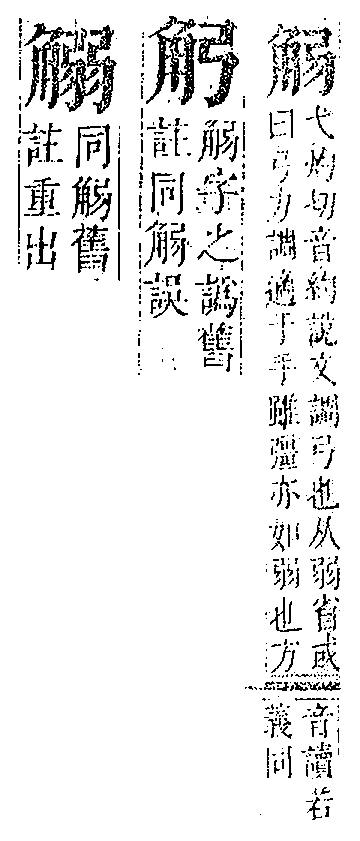 弋灼切音約說文調弓也从弱省或
曰弓力調適于手雖彊亦如弱也方
音讀若
義同
字之譌舊
註同誤
同舊
註重出